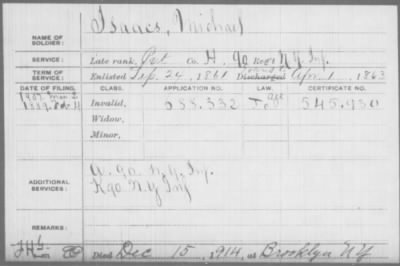 NAME OF SOLDIER: Isaacs, Michael
SERVICE: Late rank, Co. H, 90 Reg't N.Y. Inf.
TERM OF SERVICE: Enlisted Sep. 24, 1861 Discharged Apr. 1, 1863
DATE OF FILING. CLASS. APPLICATION NO. LAW. CERTIFICATE NO.
Invalid, 545.930
Widow,
Minor,
ADDITIONAL SERVICES: 90 N.Y. Inf.
K 90 N.Y. Inf
REMARKS:
Died Dec 15, 1914, at Brooklyn NY